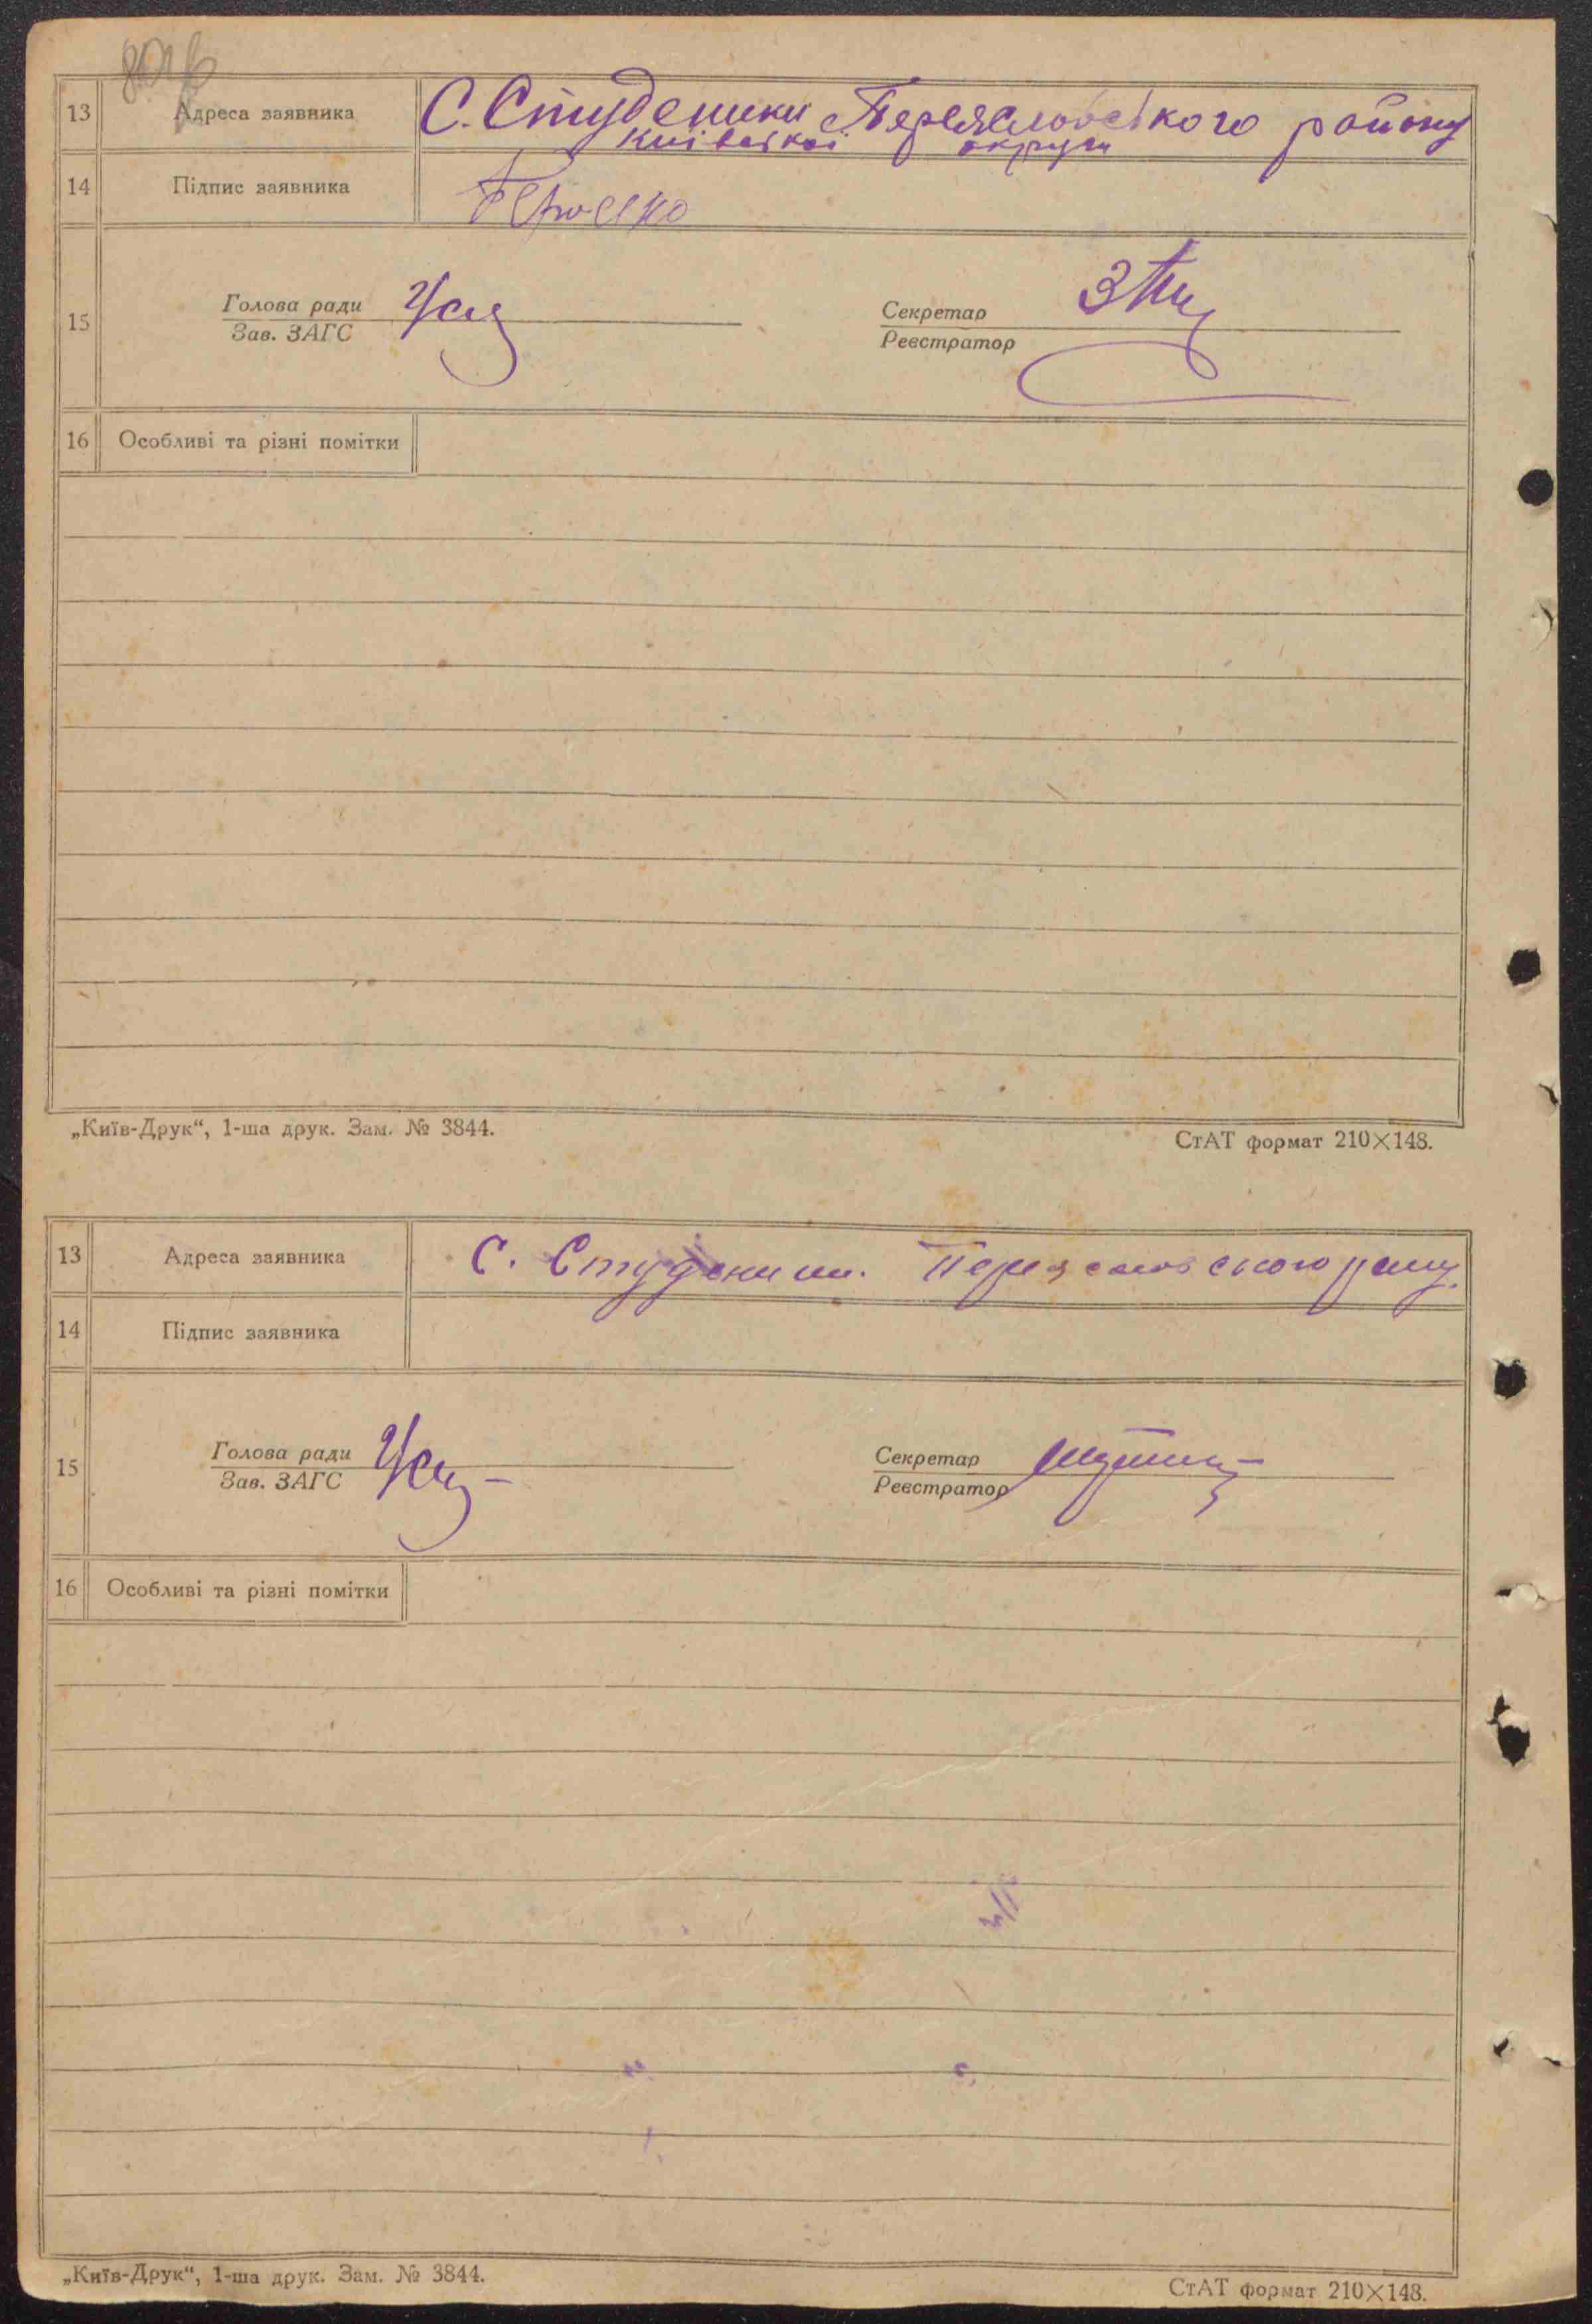 13 Адреса заявника С. Студеники Переяславського району
Київської округи
14 Підпис заявника
15 Голова ради Секретар
Зав. ЗАГС Реєстратор
16 Особливі та різні помітки
„Київ-Друк“, 1-ша друк. Зам. № 3844. СтАТ формат 210×148.
13 Адреса заявника С. Студеники. Переяславського рану.
14 Підпис заявника
15 Голова ради Секретар
Зав. ЗАГС Реєстратор
16 Особливі та різні помітки
„Київ-Друк“, 1-ша друк. Зам. № 3844. СтАТ формат 210×148.